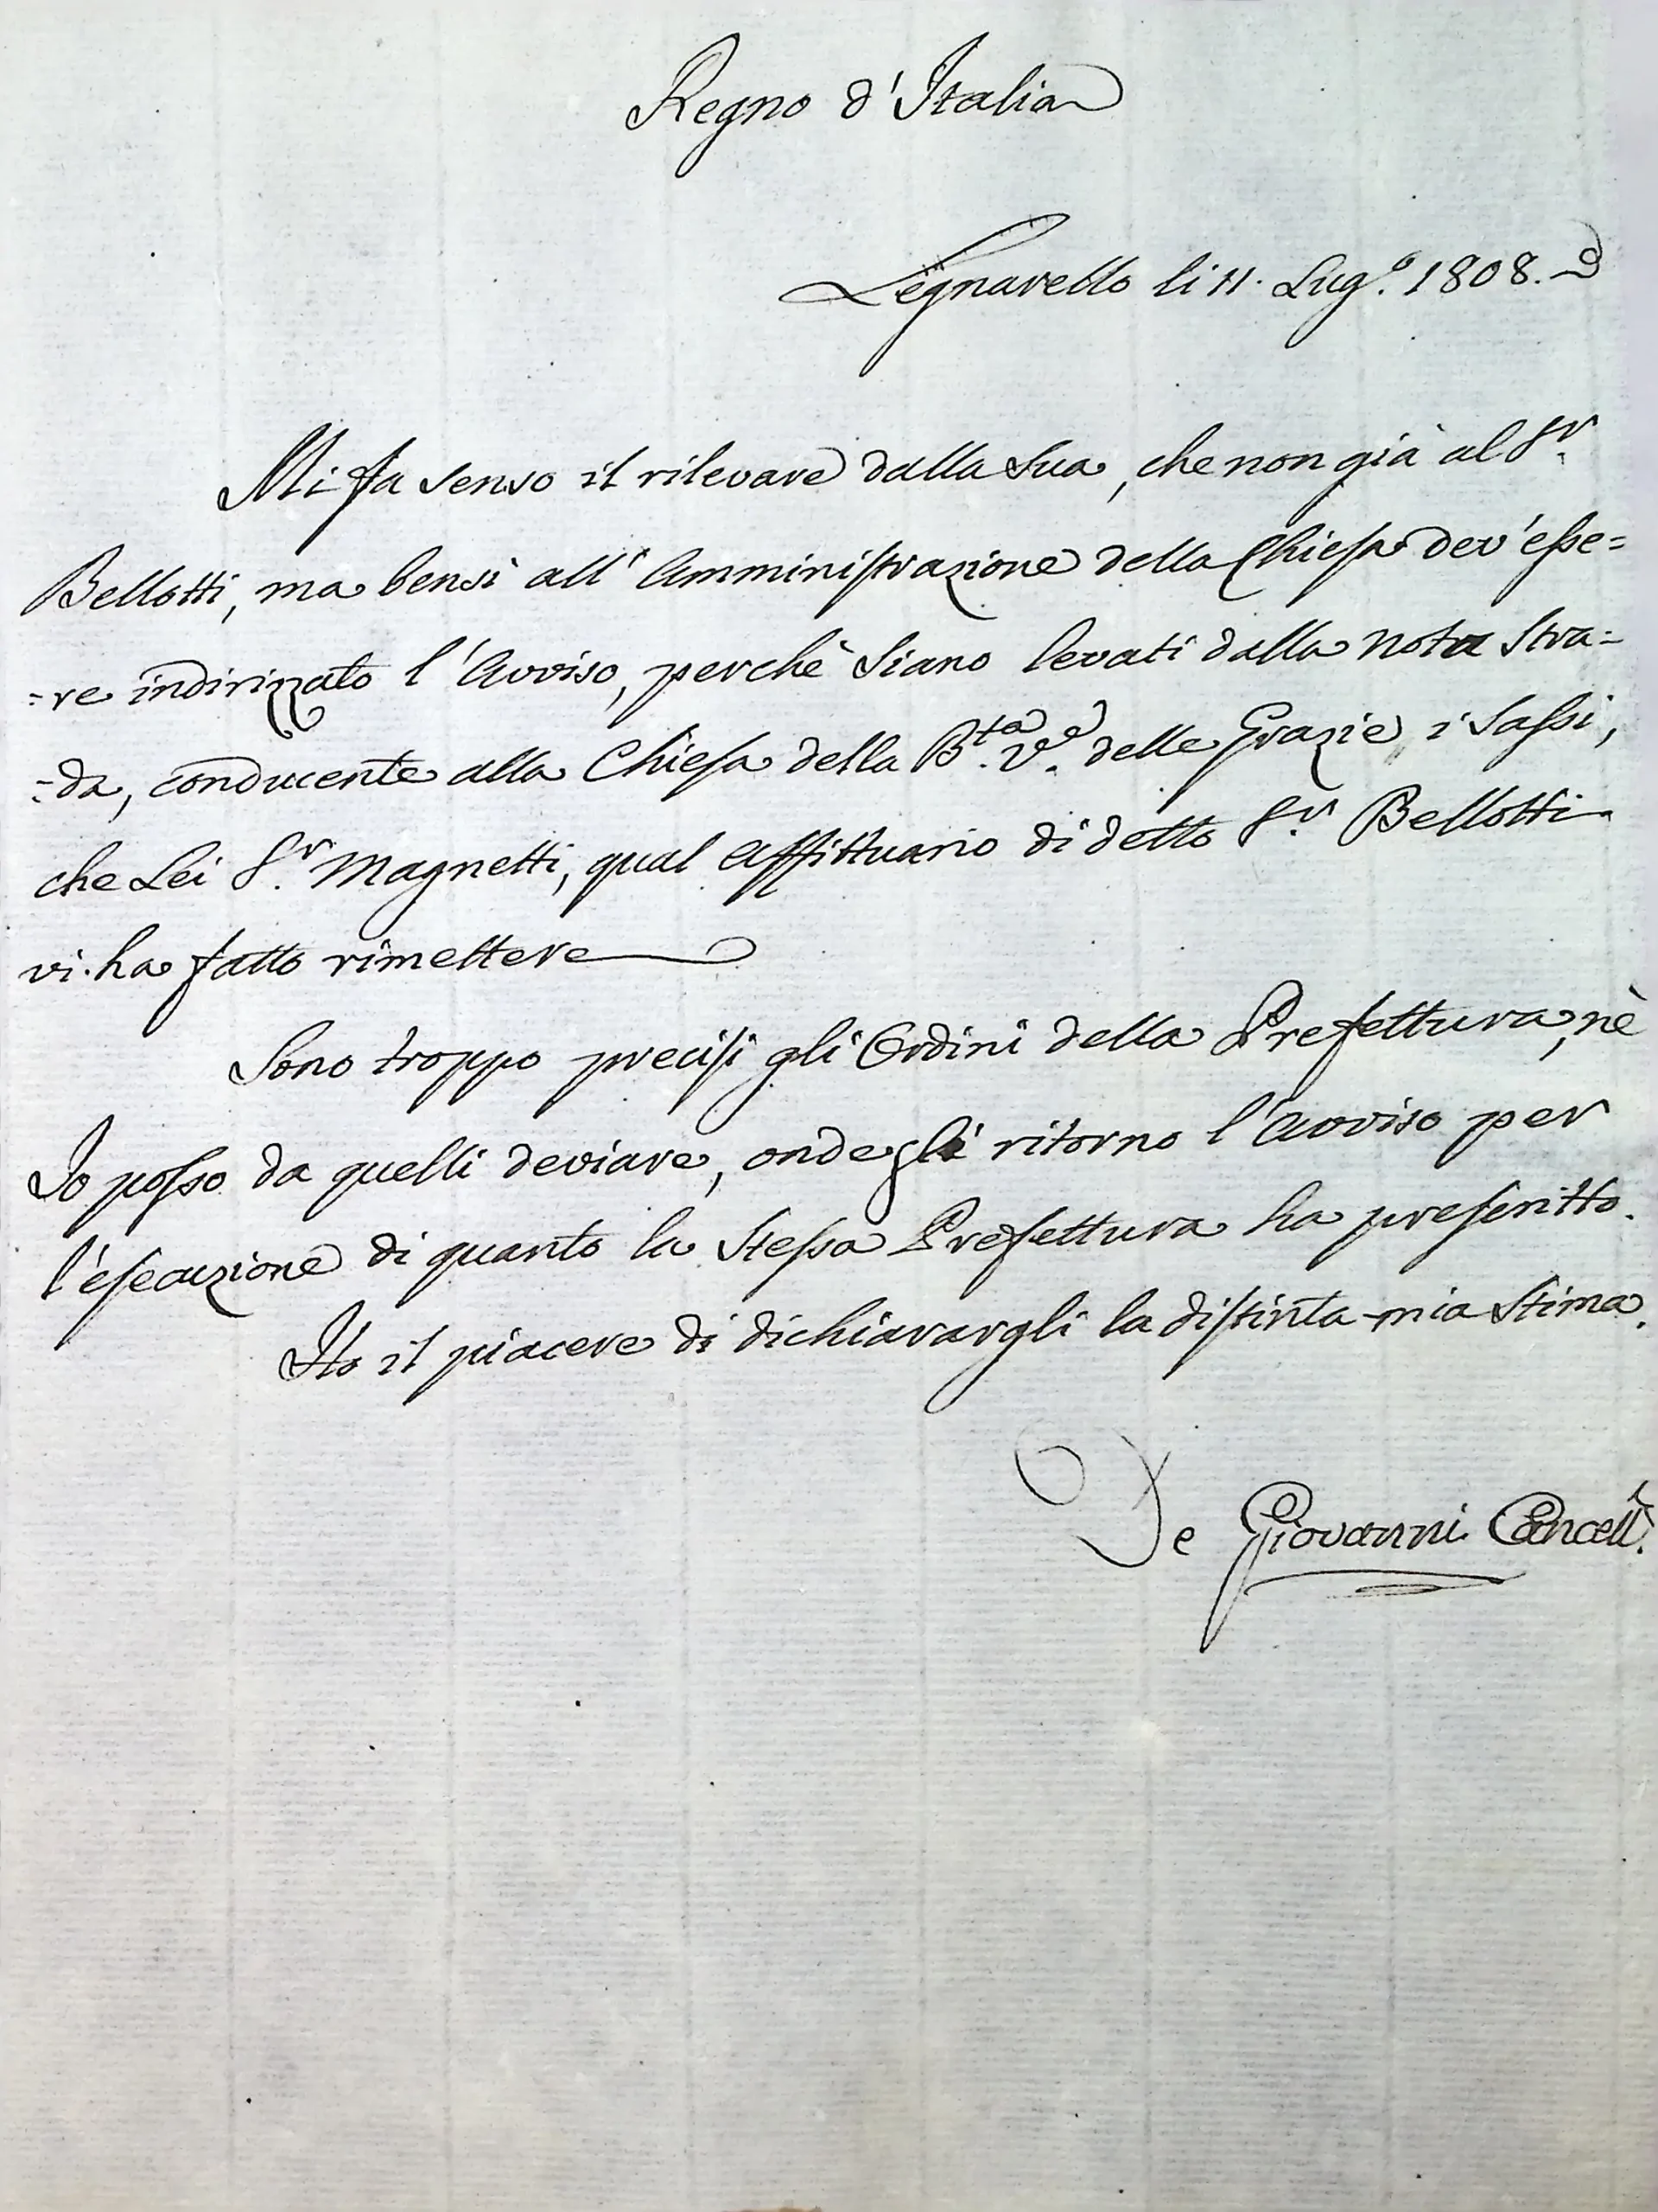 Regno d'Italia
Legnarello li 11. Lug.º 1808.
Mi fa senso il rilevare dalla Sua, che non già al S.r
Bellotti, ma bensì all'Amministrazione della Chiesa dev'esse=
=re indirizzato l'Avviso, perchè Siano levati dalla nota Stra=
=da, conducente alla Chiesa della B.ta V.e delle Grazie i Sassi,
che Lei S.r Magnetti, qual Affittuario di detto S.r Bellotti
vi ha fatto rimettere
Sono troppo precisi gli Ordini della Prefettura, nè
Io posso da quelli deviare, onde gli ritorno l'Avviso per
l'esecuzione di quanto la Stessa Prefettura ha prescritto.
Ho il piacere di dichiarargli la distinta mia Stima.
De Giovanni Cancell.